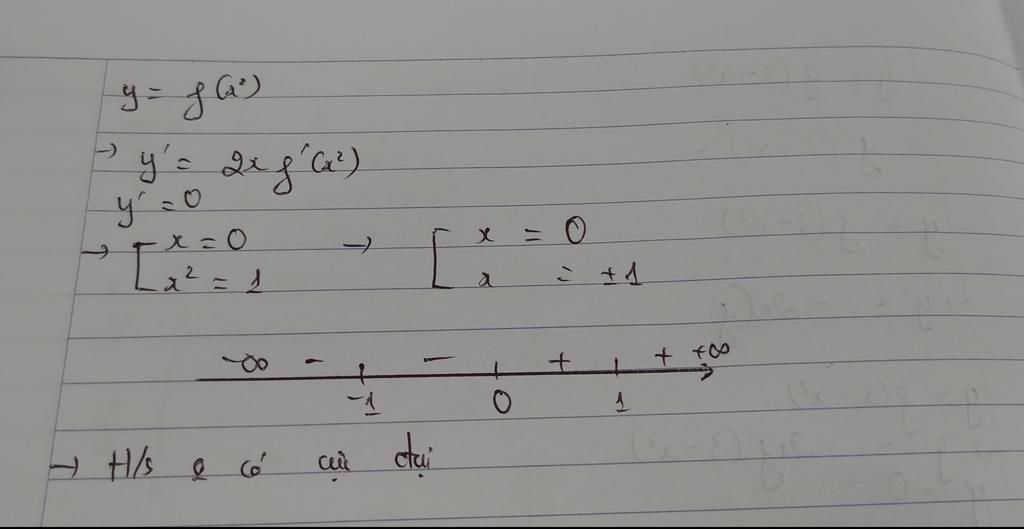 y = f(x²)
→ y' = 2x f'(x²)
y' = 0
→ [ x = 0 → [ x = 0
x² = 1 x = ±1
-∞ - - + + +∞
-1 0 1
→ H/s có cực đại